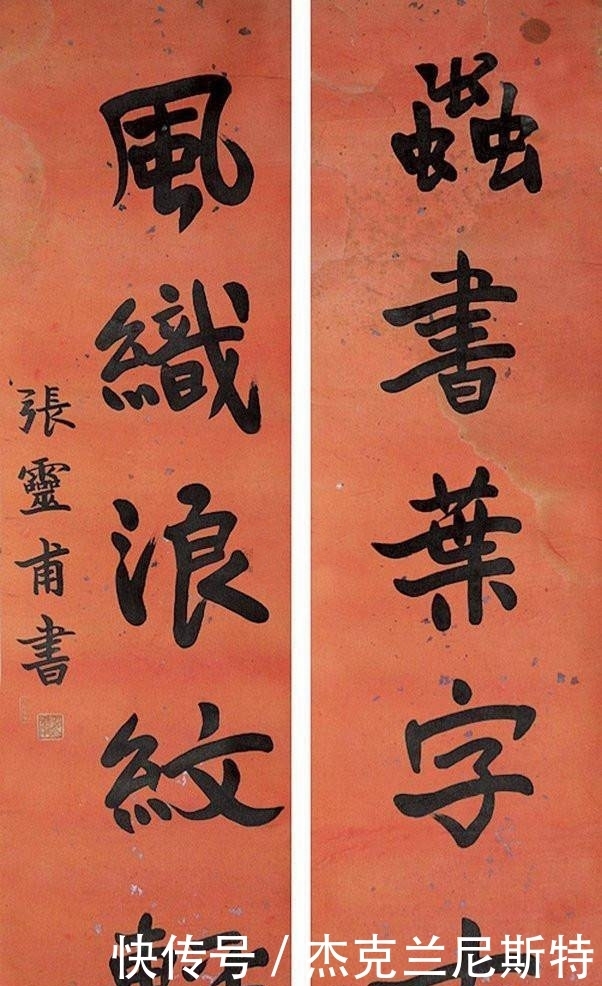 蟲書葉字
風織浪紋
張靈甫書
快传号/杰克兰尼斯特